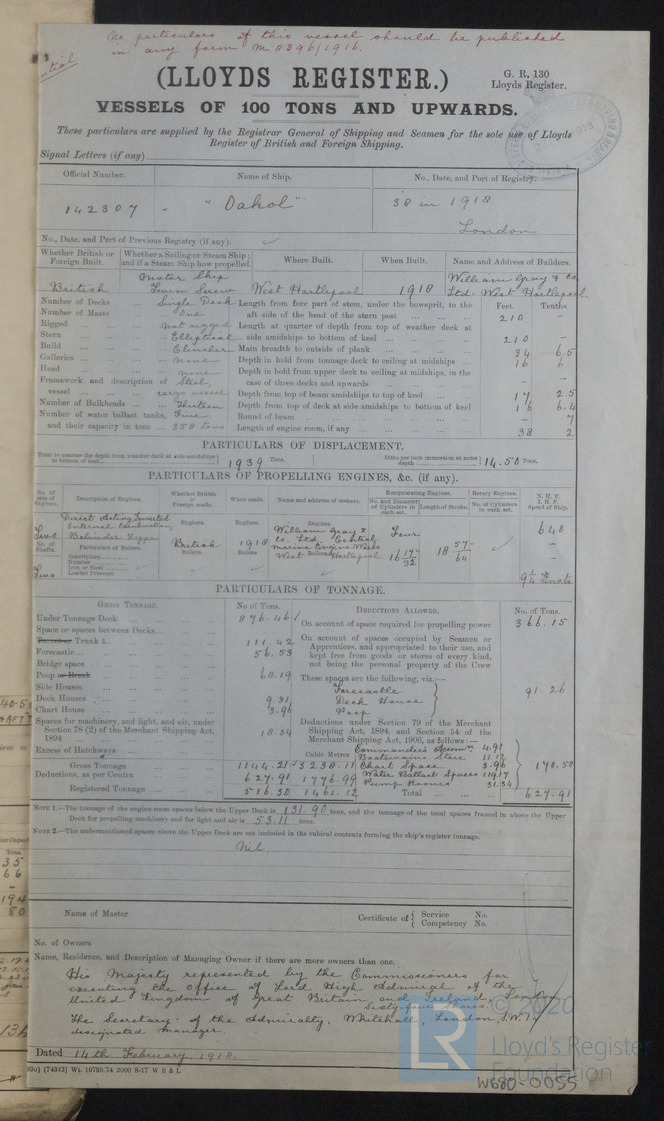 No particulars of this vessel should be published
in any form M 8396/1916.
(LLOYDS REGISTER.)
G. R. 130
Lloyds Register.
VESSELS OF 100 TONS AND UPWARDS.
These particulars are supplied by the Registrar General of Shipping and Seamen for the sole use of Lloyds
Register of British and Foreign Shipping.
Signal Letters (if any)
Official Number. Name of Ship. No., Date, and Port of Registry.
142307 - "Oakol" 38 in 1918
London
No., Date, and Port of Previous Registry (if any).
Whether British or Foreign Built. Whether a Sailing or Steam Ship; and if a Steam Ship how propelled. Where Built. When Built. Name and Address of Builders.
British Motor Ship Twin Screw West Hartlepool 1918 William Gray & Co. Ltd. West Hartlepool
Number of Decks Single Deck
Number of Masts One
Rigged not rigged
Stern Elliptical
Build Clincher
Galleries none
Head none
Framework and description of vessel Steel, cargo vessel
Number of Bulkheads Thirteen
Number of water ballast tanks, Five
and their capacity in tons 350 tons
Feet. Tenths.
Length from fore part of stem, under the bowsprit, to the
aft side of the head of the stern post 210 -
Length at quarter of depth from top of weather deck at
side amidships to bottom of keel 210 -
Main breadth to outside of plank 34 6.5
Depth in hold from tonnage deck to ceiling at midships 16 6
Depth in hold from upper deck to ceiling at midships, in the
case of three decks and upwards - -
Depth from top of beam amidships to top of keel 17 2.5
Depth from top of deck at side amidships to bottom of keel 16 6.4
Round of beam - 7
Length of engine room, if any 38 2
PARTICULARS OF DISPLACEMENT.
Total to quarter the depth from weather deck at side amidships to bottom of keel 1939 Tons.
Ditto per inch immersion at same depth 14.50 Tons.
PARTICULARS OF PROPELLING ENGINES, &c. (if any).
No. of sets of Engines. Description of Engines. Whether British or Foreign made. When made. Name and address of makers. Reciprocating Engines. Rotary Engines. N. H. P.
No. and Diameter of Cylinders in each set. Length of Stroke. No. of Cylinders in each set. I. H. P. Speed of Ship.
Two Direct Acting Inverted Internal Combustion, Bolinder Type
Engines. British Engines. 1918 Engines. William Gray & Co. Ltd. Central Marine Engine Works West Hartlepool
Four 16 17/32 18 57/64 640
No. of Shafts. Two
Particulars of Boilers.
Description
Number
Iron or Steel
Loaded Pressure
Boilers Boilers Boilers
9 3/4 Knots
PARTICULARS OF TONNAGE.
GROSS TONNAGE. No. of Tons. DEDUCTIONS ALLOWED. No. of Tons.
Under Tonnage Deck 876.46
Space or spaces between Decks
Turret or Trunk 111.42
Forecastle 56.53
Bridge space
Poop or Break 68.19
Side Houses
Deck Houses 9.31
Chart House 3.96
Spaces for machinery, and light, and air, under
Section 78 (2) of the Merchant Shipping Act,
1894 18.34
Excess of Hatchways
Cubic Metres
Gross Tonnage 1144.21 = 3238.11
Deductions, as per Contra 627.91 1776.99
Registered Tonnage 516.30 1461.12
On account of space required for propelling power 366.15
On account of spaces occupied by Seamen or
Apprentices, and appropriated to their use, and
kept free from goods or stores of every kind,
not being the personal property of the Crew
These spaces are the following, viz.:-
Forecastle
Deck House
Poop
91.26
Deductions under Section 79 of the Merchant
Shipping Act, 1894, and Section 54 of the
Merchant Shipping Act, 1906, as follows:-
Commander's 4.91
Boatswains Store 11.12
Chart Space 3.96
Water Ballast Spaces 119.17
Pump Rooms 31.34
170.50
Total 627.91
NOTE 1.-The tonnage of the engine room spaces below the Upper Deck is 131.90 tons, and the tonnage of the total spaces framed in above the Upper
Deck for propelling machinery and for light and air is 53.11 tons.
NOTE 2.-The undermentioned spaces above the Upper Deck are not included in the cubical contents forming the ship's register tonnage.
Nil.
Name of Master Certificate of { Service No.
Competency No.
No. of Owners
Name, Residence, and Description of Managing Owner if there are more owners than one.
His Majesty represented by the Commissioners for
executing the office of Lord High Admiral of the
United Kingdom of Great Britain and Ireland,
Sixty four Shares.
The Secretary of the Admiralty, Whitehall, London, S.W.1
designated manager
Dated 14th February, 1918.
(74343) Wt. 19793/74 2000 8-17 W B & L
LR
© 2020
Lloyd's Register
Foundation
W680-0055